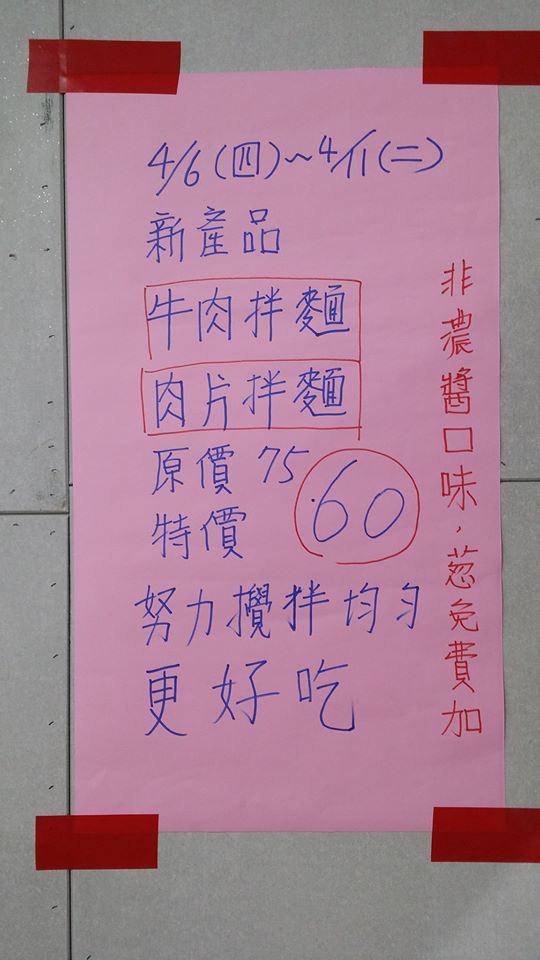 4/6(四)~4/11(二)
新產品
牛肉拌麵
肉片拌麵
原價 75
特價 60
努力攪拌均勻
更好吃
非濃醬口味,葱免費加